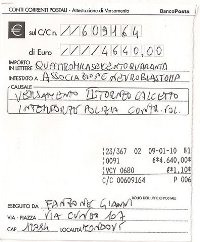 CONTI CORRENTI POSTALI - Attestazione di Versamento BancoPosta
€ sul C/C n. 609164
di Euro 4640,00
IMPORTO
IN LETTERE QUATTROMILASEICENTOQUARANTA
INTESTATO A ASSOCIAZIONE NEUROBLASTOMA
CAUSALE
VERSAMENTO II TORNEO CALCETTO
INTERFORZE POLIZIA
123/367 02 09-01-10 R1
0091 €*4.640,00*
VCY 0680 €*1,10*
C/C 00609164 P 006
ESEGUITO DA FANZONE GIANNI
VIA - PIAZZA VIA CUNEO 107
CAP LOCALITÀ MONDOVI'